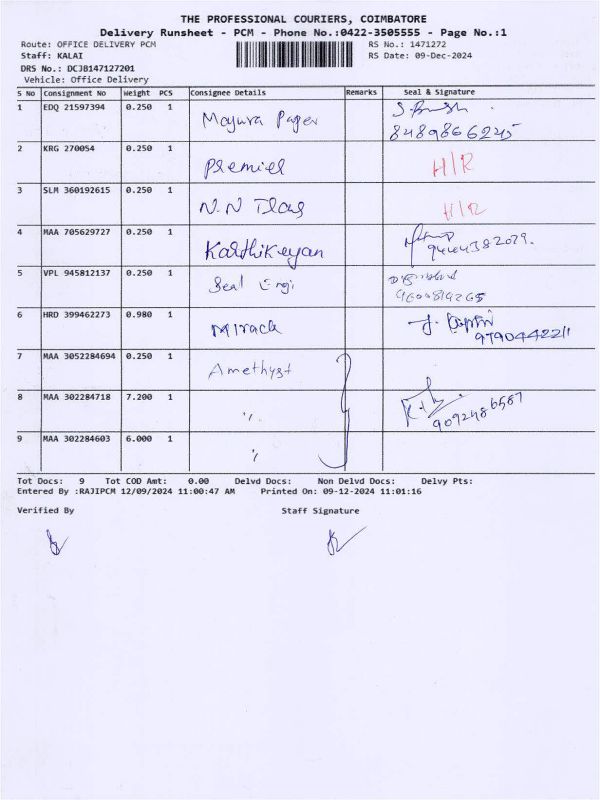 THE PROFESSIONAL COURIERS, COIMBATORE
Delivery Runsheet - PCM - Phone No.:0422-3505555 - Page No.:1
Route: OFFICE DELIVERY PCM RS No.: 1471272
Staff: KALAI RS Date: 09-Dec-2024
DRS No.: DCJB147127201
Vehicle: Office Delivery
S No Consignment No Weight PCS Consignee Details Remarks Seal & Signature
1 EDQ 21597394 0.250 1 Mayura Paper
8489866245
2 KRG 270054 0.250 1 Premier H/R
3 SLM 360192615 0.250 1 N.N H/R
4 MAA 705629727 0.250 1 Karthikeyan 9444382079.
5 VPL 945812137 0.250 1 Seal Engi
9600819265
6 HRD 399462273 0.980 1 Miracle
9790442211
7 MAA 3052284694 0.250 1 Amethyst
8 MAA 302284718 7.200 1 " 9092486587
9 MAA 302284603 6.000 1 "
Tot Docs: 9 Tot COD Amt: 0.00 Delvd Docs: Non Delvd Docs: Delvy Pts:
Entered By :RAJIPCM 12/09/2024 11:00:47 AM Printed On: 09-12-2024 11:01:16
Verified By Staff Signature